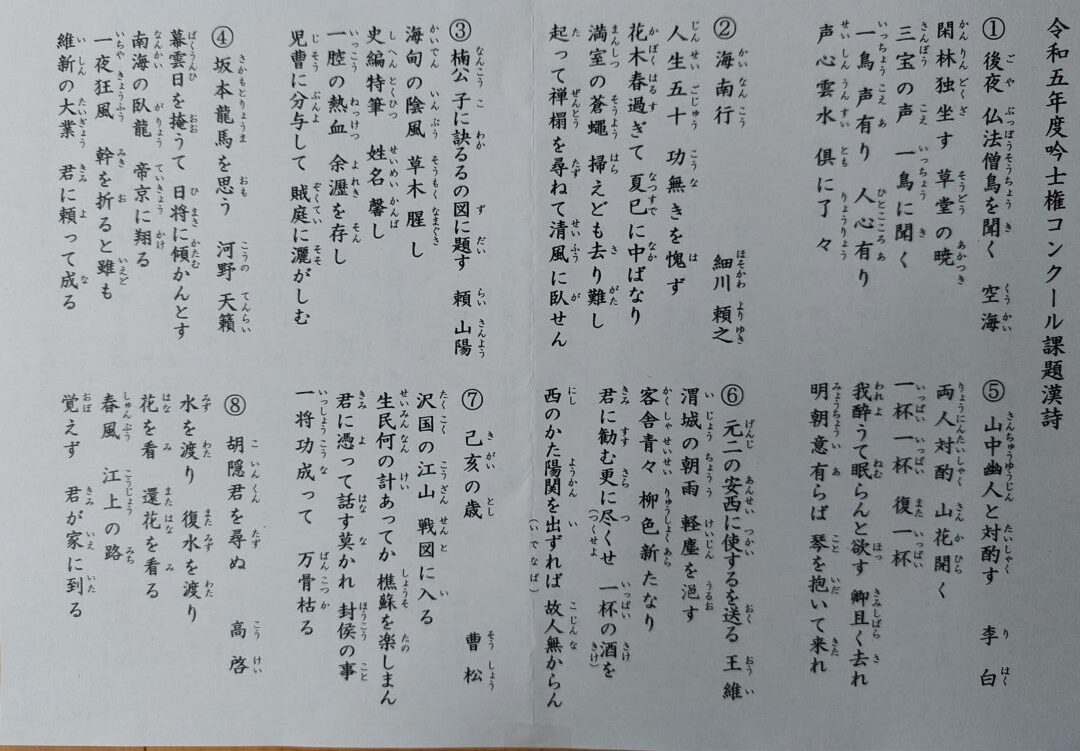 令和五年度吟士権コンクール課題漢詩
① 後夜 仏法僧鳥を聞く 空海
閑林独坐す 草堂の暁
三宝の声 一鳥に聞く
一鳥声有り 人心有り
声心雲水 倶に了々
② 海南行 細川 頼之
人生五十 功無きを愧ず
花木春過ぎて 夏已に中ばなり
満室の蒼蠅 掃えども去り難し
起って禅榻を尋ねて清風に臥せん
③ 楠公 子に訣るるの図に題す 頼 山陽
海甸の陰風 草木腥し
史編特筆 姓名馨し
一腔の熱血 余瀝を存し
児曹に分与して 賊庭に灑がしむ
④ 坂本龍馬を思う 河野 天籟
暮雲日を掩うて 日将に傾かんとす
南海の臥龍 帝京に翔る
一夜狂風 幹を折ると雖も
維新の大業 君に頼って成る
⑤ 山中幽人と対酌す 李 白
両人対酌 山花開く
一杯一杯 復一杯
我酔うて眠らんと欲す 卿且く去れ
明朝意有らば 琴を抱いて来れ
⑥ 元二の安西に使するを送る 王 維
渭城の朝雨 軽塵を浥す
客舎青々 柳色新たなり
君に勧む更に尽くせ 一杯の酒を
(つくせよ) (さけ)
西のかた陽関を出ずれば 故人無からん
(いでなば)
⑦ 己亥の歳 曹 松
沢国の江山 戦図に入る
生民何の計あってか 樵蘇を楽しまん
君に憑って話す莫かれ 封侯の事
一将功成って 万骨枯る
⑧ 胡隠君を尋ぬ 高 啓
水を渡り 復水を渡り
花を看 還花を看る
春風 江上の路
覚えず 君が家に到る